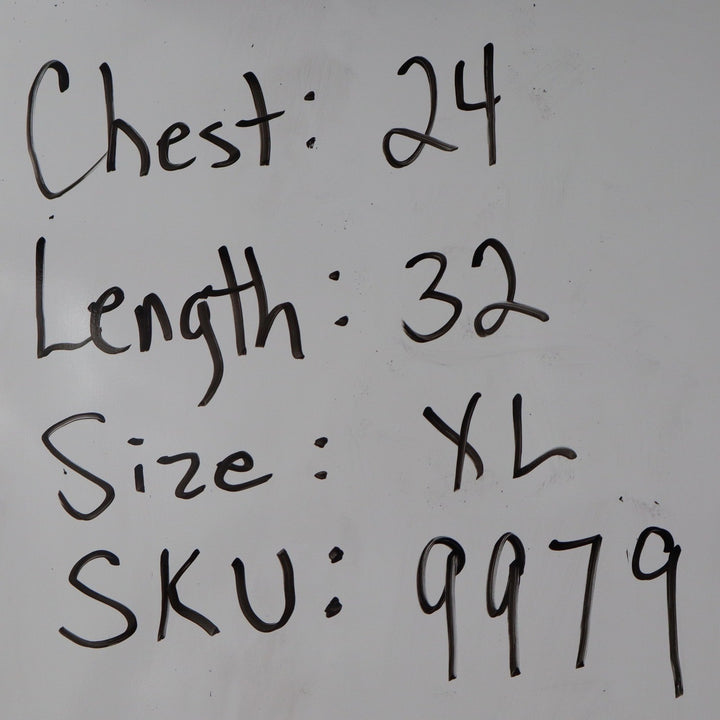 Chest: 24
Length: 32
Size: XL
SKU: 9979